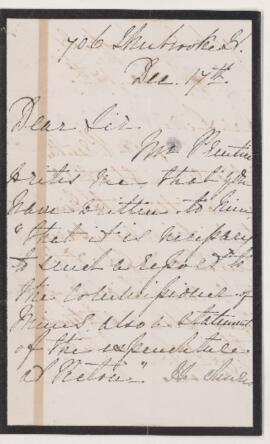 706 Sherbrooke St.
Dec. 17th
Dear Sir.
Mr Prentice
writes me that you
have written to him
"that it is necessary
to send a report to
the Commissioner of
Mines also a statement
of the expenditure
at Picton." He